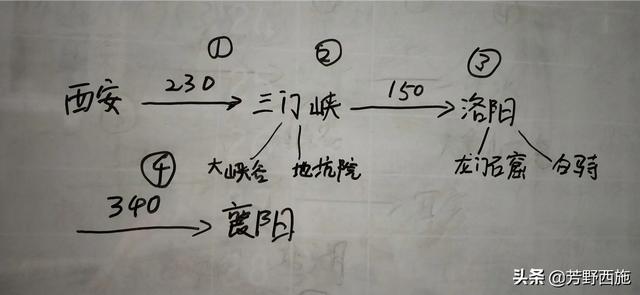 ① ② ③
西安 230 三门峡 150 洛阳
大峡谷 地坑院 龙门石窟 白骑
④
340 襄阳
头条 @芳野西施